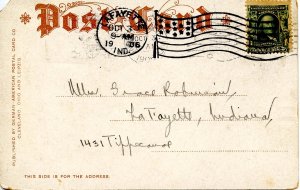 Post Card
LAFAYETTE
OCT 3
9-AM
1906
IND.
Miss Grace Robinson
La Fayette, Indiana
1431 Tippecanoe
PUBLISHED BY GERMAN-AMERICAN POSTAL CARD CO
CLEVELAND, OHIO AND LEIPZIG
THIS SIDE IS FOR THE ADDRESS.